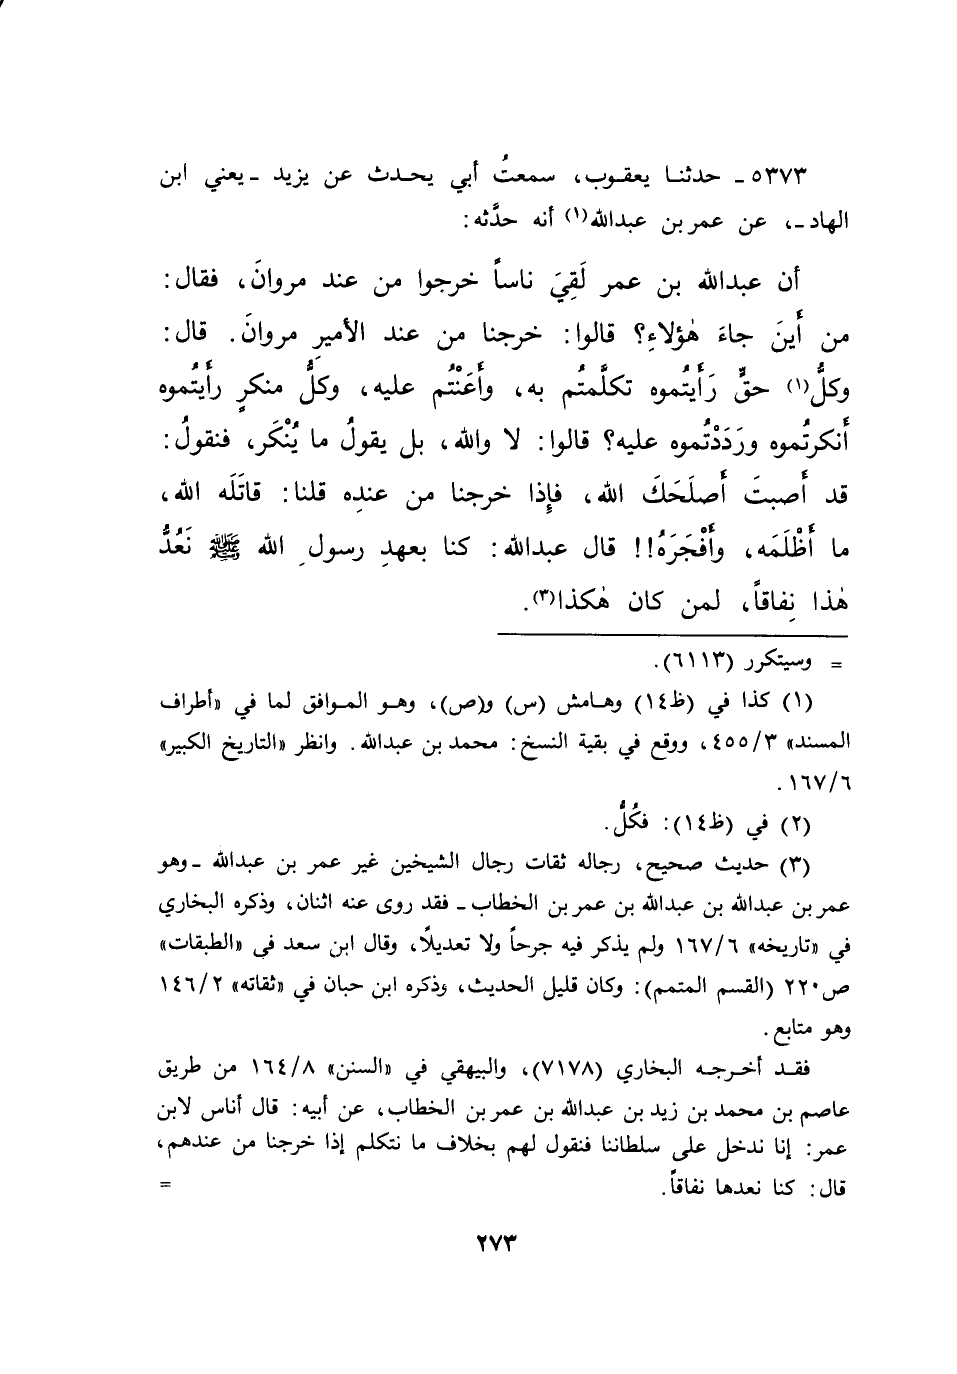 ٥٣٧٣ ـ حدثنـا يعقـوب، سمعتُ أبي يحـدث عن يزيد ـ يعني ابن
الهاد ـ، عن عمر بن عبدالله(١) أنه حدَّثه:
أن عبدالله بن عمر لَقِيَ ناساً خرجوا من عند مروانَ، فقال:
من أَينَ جاءَ هٰؤلاءِ؟ قالوا: خرجنا من عند الأميرِ مروانَ. قال:
وكلُّ(١) حقٍّ رَأَيتُموه تكلَّمتُم به، وأَعَنْتُم عليه، وكلُّ منكرٍ رأَيتُموه
أَنكرتُموه ورَدَدْتُموه عليه؟ قالوا: لا والله، بل يقولُ ما يُنْكَر، فنقولُ:
قد أَصبتَ أَصلَحَكَ الله، فإِذا خرجنا من عندِه قلنا: قاتَلَه الله،
ما أَظْلَمَه، وأَفْجَرَهُ!! قال عبدالله: كنا بعهدِ رسولِ الله ﷺ نَعُدُّ
هٰذا نِفاقاً، لمن كان هٰكذا(٣).
= وسيتكرر (٦١١٣).
(١) كذا في (ظ١٤) وهـامش (س) و(ص)، وهـو المـوافق لما في «أطراف
المسند» ٤٥٥/٣، ووقع في بقية النسخ: محمد بن عبدالله. وانظر «التاريخ الكبير»
١٦٧/٦.
(٢) في (ظ١٤): فكُلُّ.
(٣) حديث صحيح، رجاله ثقات رجال الشيخين غير عمر بن عبدالله ـ وهو
عمر بن عبدالله بن عبدالله بن عمر بن الخطاب ـ فقد روى عنه اثنان، وذكره البخاري
في «تاريخه» ١٦٧/٦ ولم يذكر فيه جرحاً ولا تعديلاً، وقال ابن سعد في «الطبقات»
ص٢٢٠ (القسم المتمم): وكان قليل الحديث، وذكره ابن حبان في «ثقاته» ١٤٦/٢
وهو متابع.
فقـد أخـرجـه البخاري (٧١٧٨)، والبيهقي في «السنن» ١٦٤/٨ من طريق
عاصم بن محمد بن زيد بن عبدالله بن عمر بن الخطاب، عن أبيه: قال أناس لابن
عمر: إنا ندخل على سلطاننا فنقول لهم بخلاف ما نتكلم إذا خرجنا من عندهم،
قال: كنا نعدها نفاقاً. =
٢٧٣